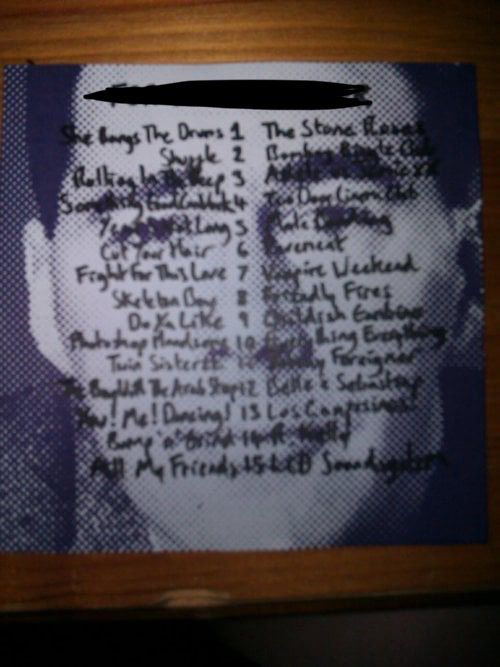 She Bangs The Drums 1 The Stone Roses
Shuffle 2 Bombay Bicycle Club
Rolling In The Deep 3 Adele
Something Good Can Work 4 Two Door Cinema Club
5
Cut Your Hair 6 Pavement
Fight For This Love 7 Vampire Weekend
Skeleton Boy 8 Friendly Fires
Do Ya Like 9 Childish Gambino
Photoshop Handsome 10 Everything Everything
Twin Sisterz 11 Johnny Foreigner
The Boy With The Arab Strap 12 Belle & Sebastian
You! Me! Dancing! 13 Los Campesinos!
Bump 'n' Grind 14 R. Kelly
All My Friends 15 LCD Soundsystem